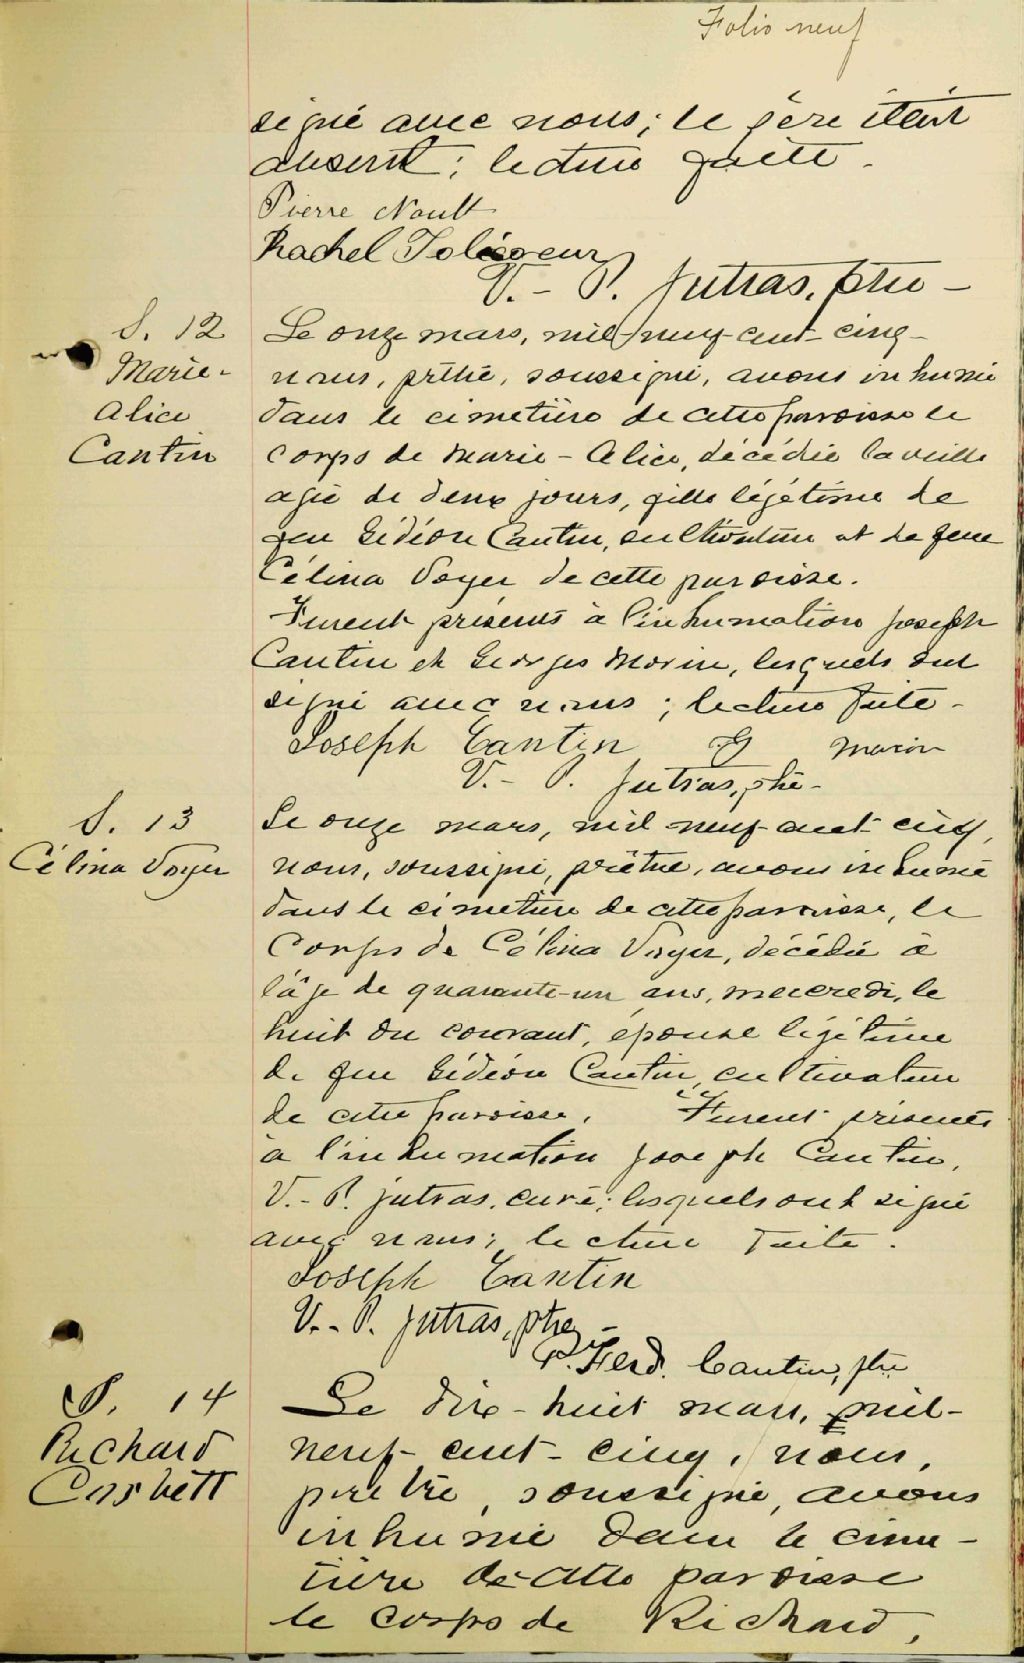 Folio neuf
signé avec nous; le père était
absent; lecture faite.
Pierre Noult
Rachel Jolicoeur
V.-P. Jutras, ptre -
S. 12
Marie-
Alice
Cantin
Le onze mars, mil-neuf-cent-cinq-
nous, prêtre, soussigné, avons inhumé
dans le cimetière de cette paroisse le
corps de Marie-Alice, décédée la veille
agée de deux jours, fille légétime de
feu Gédéon Cantin, cultivateur et de feue
Célina Voyer de cette paroisse.
Furent présents à l'inhumation Joseph
Cantin et Georges Morin, lesquels ont
signé avec nous; lecture faite-
Joseph Cantin G Morin
V.-P. Jutras, ptre-
S. 13
Célina Voyer
Le onze mars, mil-neuf-cent-cinq,
nous, soussigné, prêtre, avons inhumé
dans le cimetière de cette paroisse, le
Corps de Célina Voyer, décédée à
l'âge de quarante-un ans, mercredi, le
huit du courant, épouse légitime
de feu Gédéon Cantin, cultivateur
de cette paroisse. Furent présents
à l'inhumation Joseph Cantin,
V.-P. Jutras, curé; lesquels ont signé
avec nous; lecture faite.
Joseph Cantin
V.-P. Jutras, ptre-
P. Ferd. Cantin, ptre
S. 14
Richard
Corbett
Le dix-huit mars, mil-
neuf-cent-cinq, nous,
prêtre, soussigné, avons
inhumé dans le cime-
tière de cette paroisse
le corps de Richard,